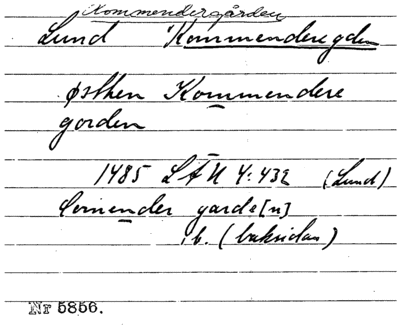 Kommendergården
Lund Kommenderegden
østhen Kommendere
gorden
1485 LÄU 4:432 (Lund)
Comender garde[n]
ib. (baksidan)
Nr 5856.